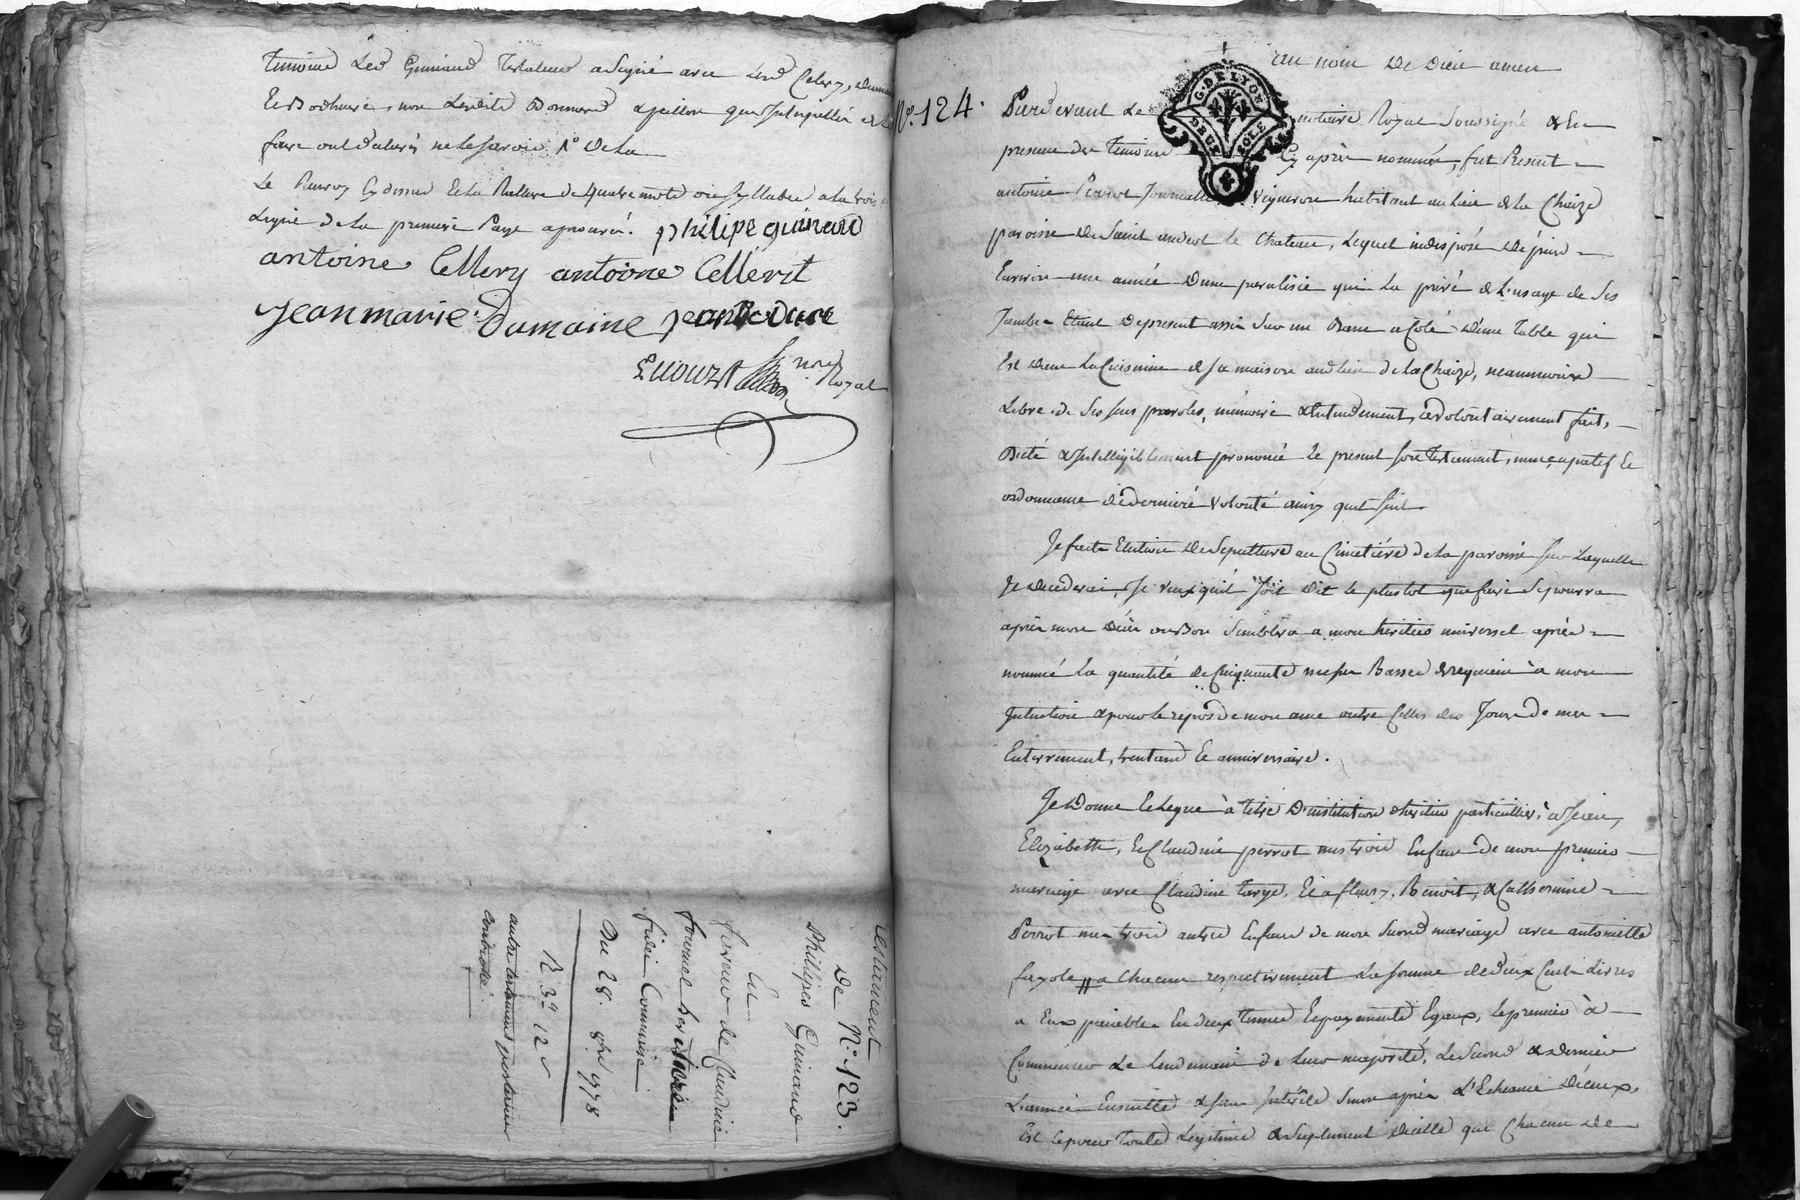 temoins Led Guinand testateur a signé avec Lesd Cellery, Dumaine
et Bodhuire, non Lesdits Donnard & peillon que interpellés de le
faire ont déclarés ne le savoir. /. De la
Le Renvoy cy dessus & la Rature de quatre mots ou syllabes a la trois
Ligne de la premiere Page aprouvés. philipe guinand
antoine Cellery antoine Cellerit
jean marie Dumaine
Enouzt nre Royal
testament
De N.º 123.
Phillipes Guinand
En
faveur de Claudine
fournel heritiere
fidei Commise
Du 28. 8bre 1778
R 3º 12 s
autre testament posterieur
controllé.
au nom De Dieu amen
Nº. 124.
G. DE LYON
DEUX SOLS
Pardevant Le notaire Royal Soussigné & En
presence des temoins Cy après nommés, fut Present
antoine Perrot Journallier Vigneron habitant au Lieu de la Chaize
paroisse de Saint andeol le Chateau, Lequel indisposé depuis
Environ une année d'une paralisie qui La privé de L'usage de Ses
Jambes Etant De present assis Sur un Banc a Coté d'une table qui
Est dans La Cuisine de sa maison aud lieu de la Chaize, neanmoins
Libre de Ses sens paroles, mémoire & Entendement, a volontairement fait,
Dicté & Intelligiblement prononcé le present son testament nuncupatif Et
ordonnance de derniere volonté ainsy quil suit
Je fais Election De Sepulture au Cimetiére de la paroisse sur Laquelle
Je Decederai, Je veux quil soit dit le plustot que faire Se pourra
après mon Décés ou Bon Semblera a mon heritier universel après
nommé La quantité de Cinquante messes Basses de requiem à mon
Intention & pour le repos de mon ame outre Celles des Jours de mes
Enterrement, trentaine et anniversaire.
Je Donne & Legue à titre D'institution d'heritier particullier, à
Elizabeth, Et Claudine perrot mes trois Enfans de mon premier
mariage avec Claudine targe, Et a fleury, Benoit, & Catherine
Perrot mes trois autres Enfans de mon Second mariage avec antoinette
fayole // a Chacun respectivement La somme de deux Cents Livres
a Eux païables En deux termes & payements Egaux, le premier à
Commencer Le Lendemain de leur majorité, Le Second & dernier
L'année Ensuitte & sans Interêts Sinon après L'Echeance d'iceux,
Est le pour toute Legitime & Suplement d'icelle que Chacun De